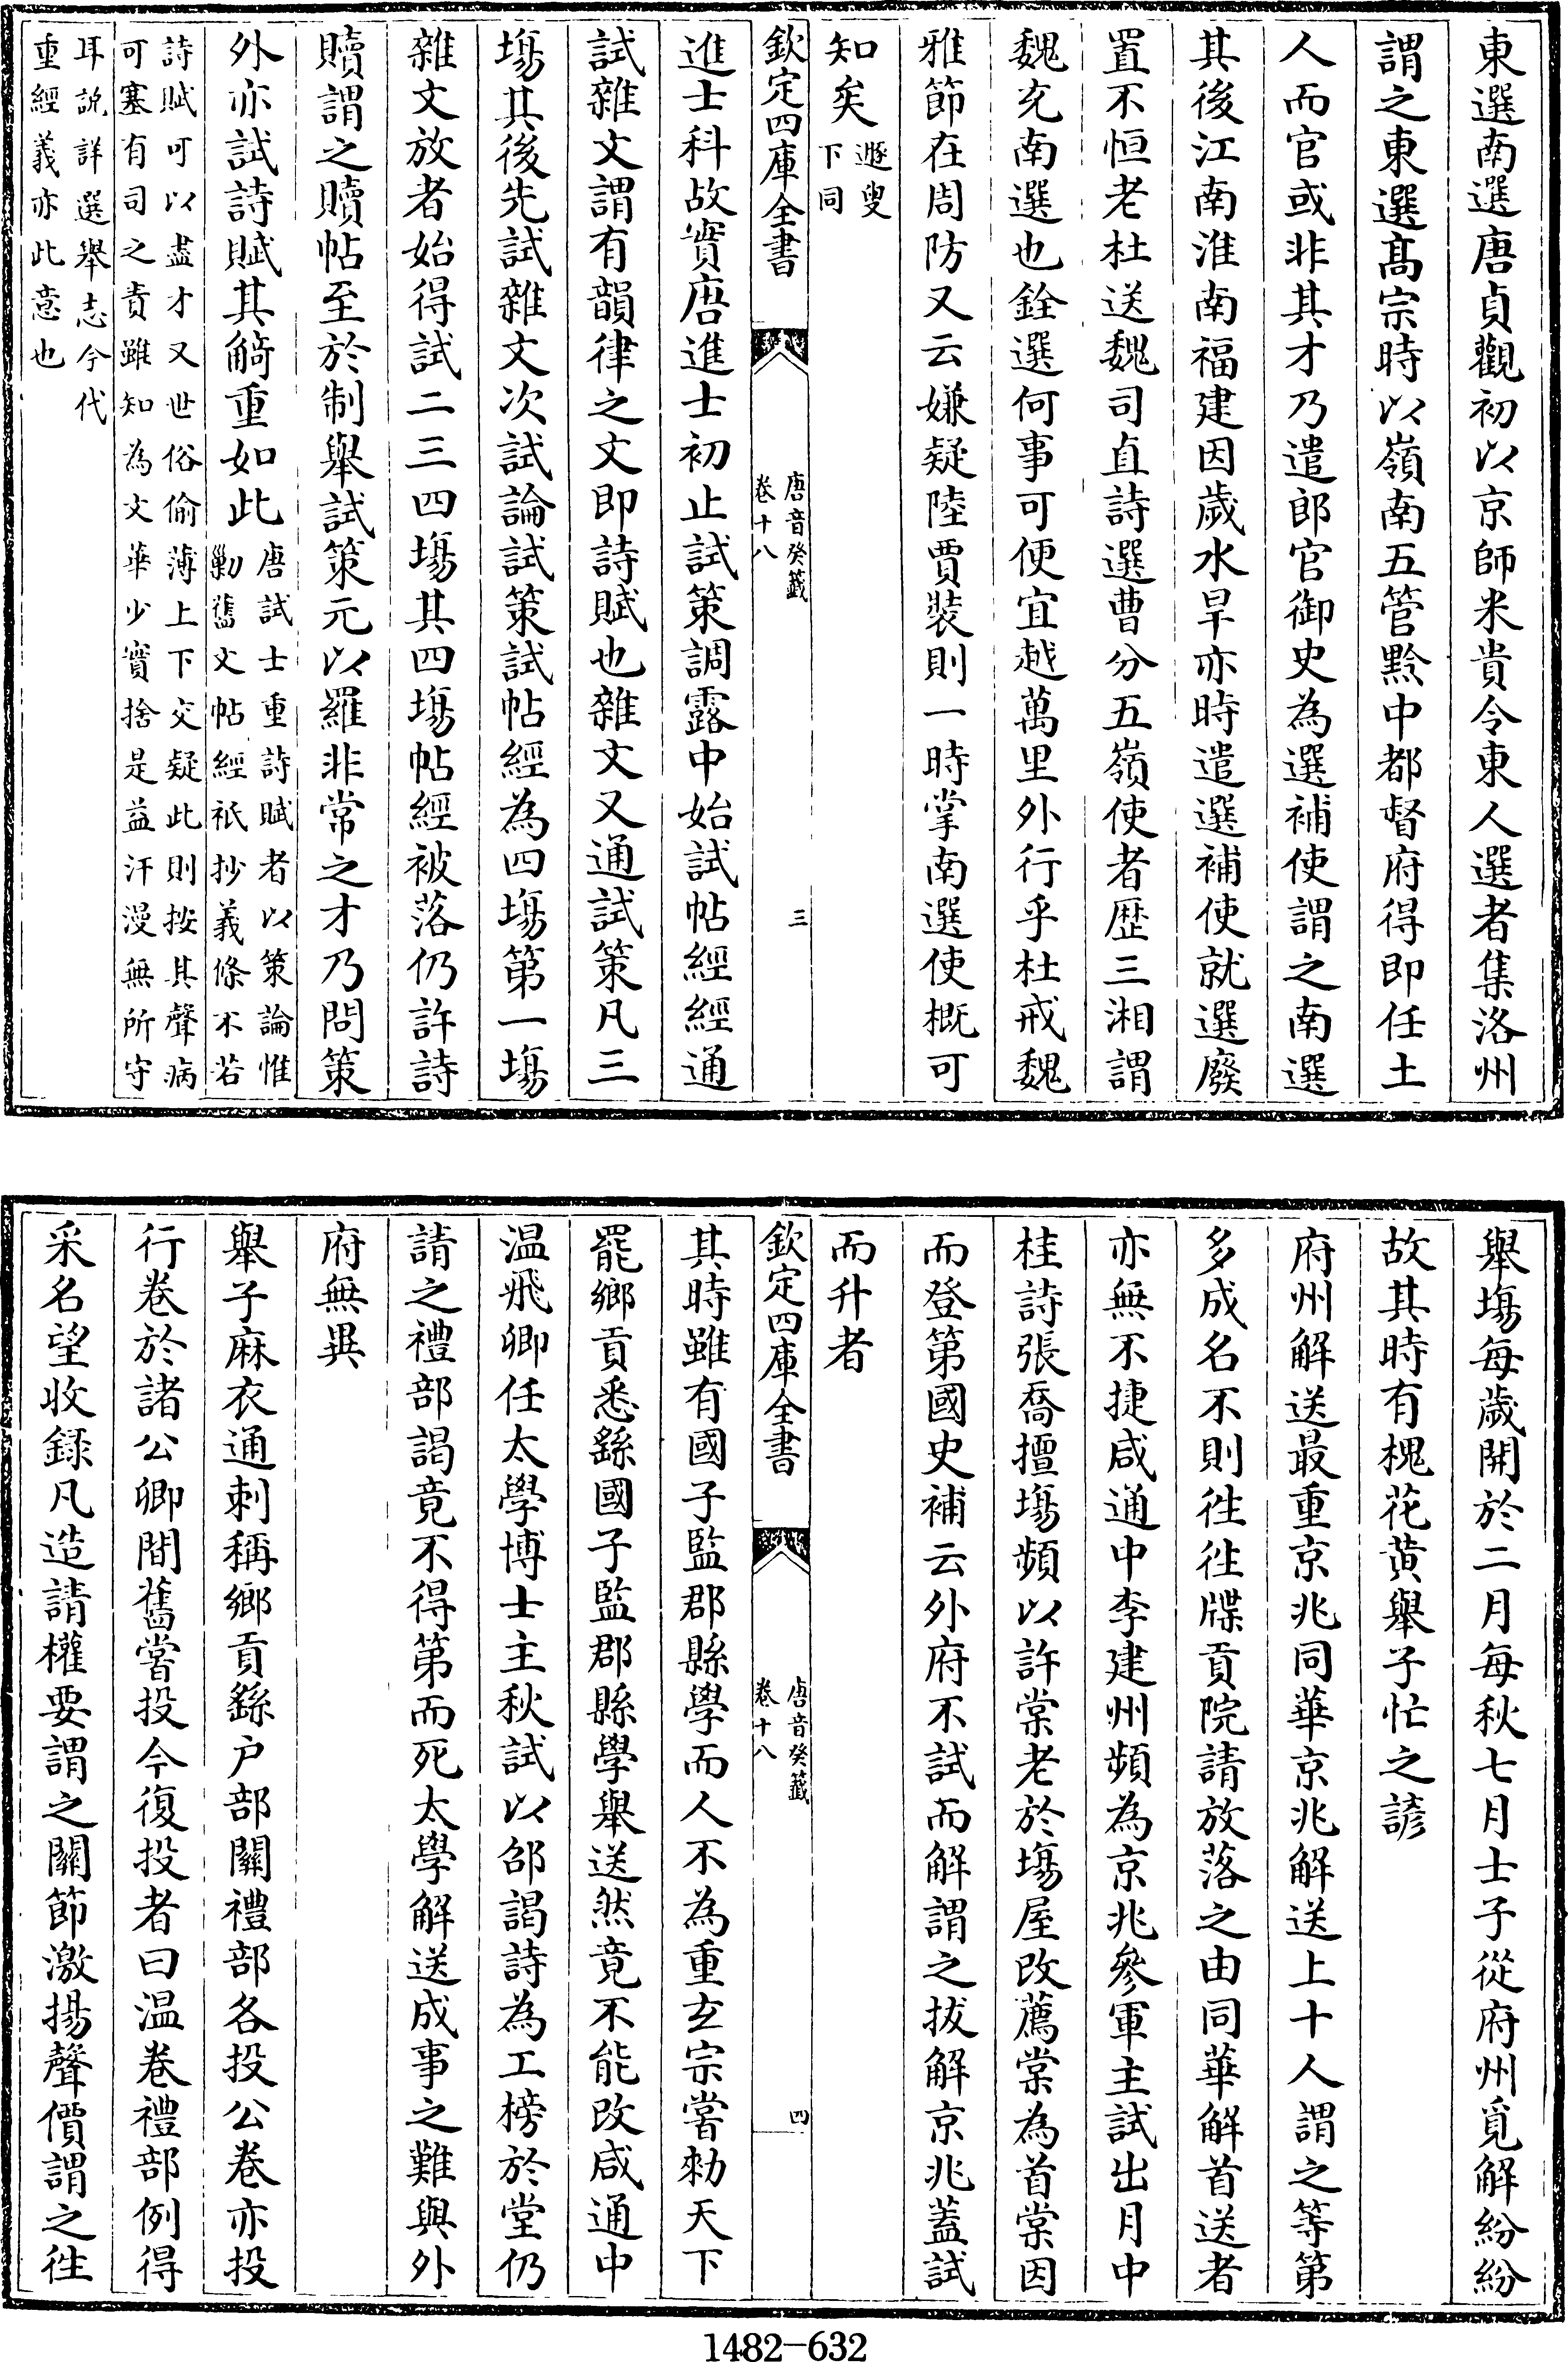 東選南選唐貞觀初以京師米貴令東人選者集洛州
謂之東選髙宗時以嶺南五管黔中都督府得即任土
人而官或非其才乃遣郎官御史為選補使謂之南選
其後江南淮南福建因歲水旱亦時遣選補使就選廢
置不恒老杜送魏司直詩選曹分五嶺使者歴三湘謂
魏充南選也銓選何事可便宜越萬里外行乎杜戒魏
雅節在周防又云嫌疑陸賈裝則一時掌南選使概可
知矣
遯叟
下同
欽定四庫全書
唐音癸籤
卷十八
三
進士科故實唐進士初止試策調露中始試帖經經通
試雜文謂有韻律之文即詩賦也雜文又通試策凡三
塲其後先試雜文次試論試策試帖經為四塲第一塲
雜文放者始得試二三四塲其四塲帖經被落仍許詩
贖謂之贖帖至於制舉試策元以羅非常之才乃問策
外亦試詩賦其觭重如此
唐試士重詩賦者以策論惟
勦舊文帖經祇抄義條不若
詩賦可以盡才又世俗偷薄上下交疑此則按其聲病
可塞有司之責雖知為文華少實捨是益汗漫無所守
耳説詳選舉志今代
重經義亦此意也
舉塲每歲開於二月每秋七月士子從府州覓解紛紛
故其時有槐花黄舉子忙之諺
府州解送最重京兆同華京兆解送上十人謂之等第
多成名不則徃徃牒貢院請放落之由同華解首送者
亦無不捷咸通中李建州頻為京兆參軍主試出月中
桂詩張喬擅塲頻以許棠老於塲屋改薦棠為首棠因
而登第國史補云外府不試而解謂之拔解京兆蓋試
而升者
欽定四庫全書
唐音癸籤
卷十八
四
其時雖有國子監郡縣學而人不為重玄宗嘗勅天下
罷鄉貢悉繇國子監郡縣學舉送然竟不能改咸通中
温飛卿任太學博士主秋試以邵謁詩為工榜於堂仍
請之禮部謁竟不得第而死太學解送成事之難與外
府無異
舉子麻衣通刺稱鄉貢繇户部關禮部各投公卷亦投
行卷於諸公卿間舊嘗投今復投者曰温卷禮部例得
采名望收録凡造請權要謂之關節激揚聲價謂之徃
1482-632